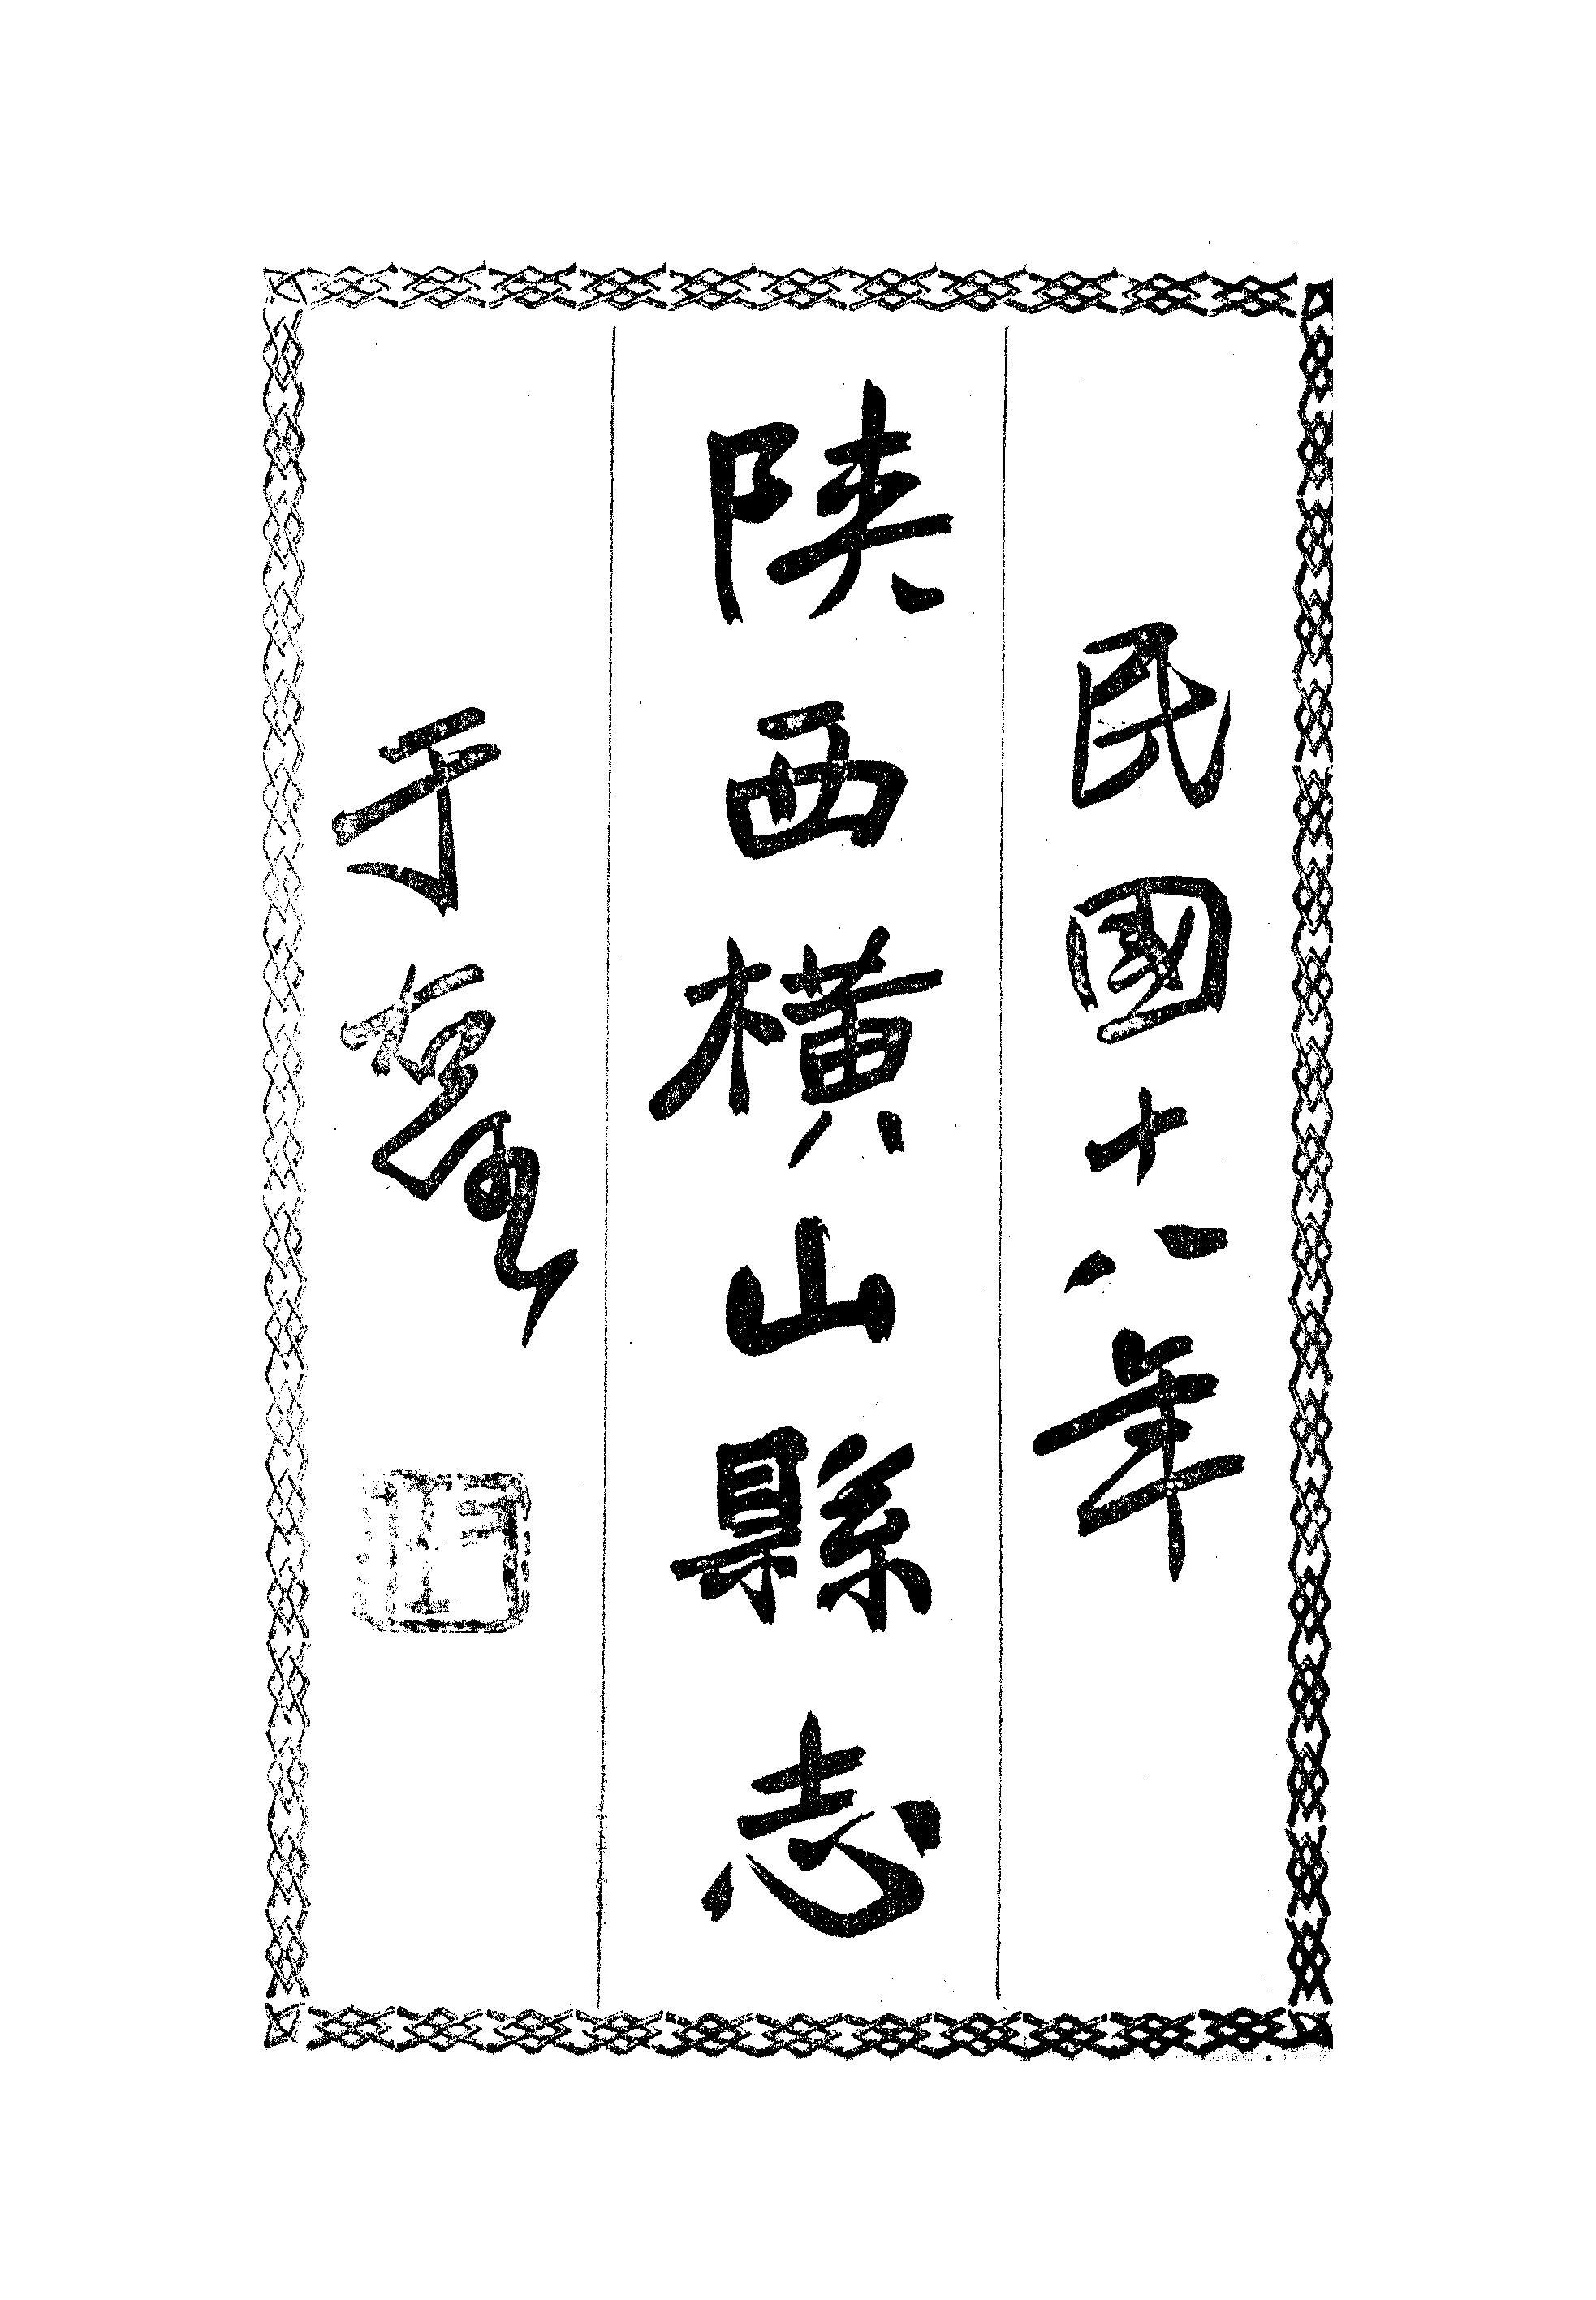 民國十八年
陝西橫山縣志
于右任